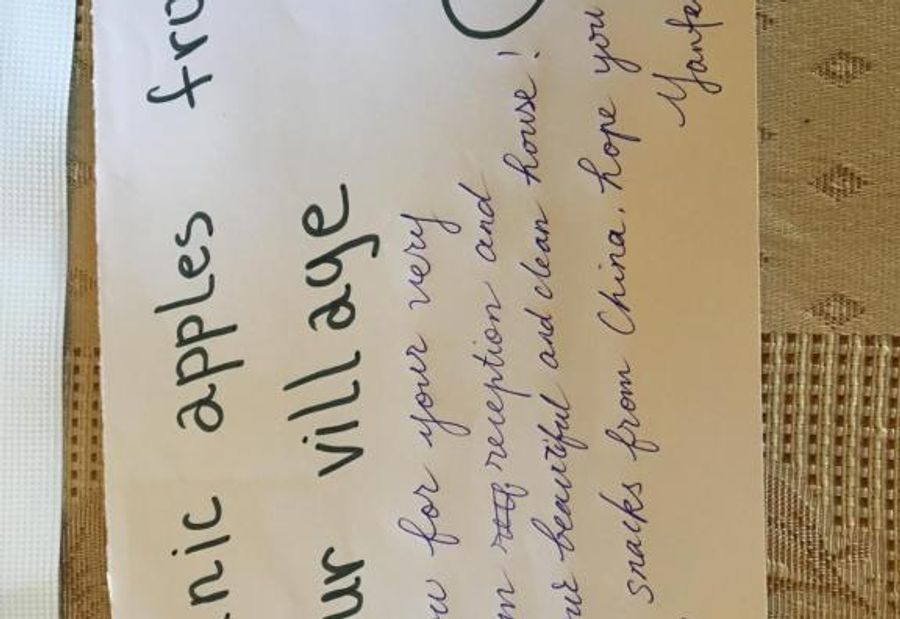 nic apples fru
ur village
u for your very
m reception and
ur beautiful and clean house!
snacks from China. hope you
Yanfe